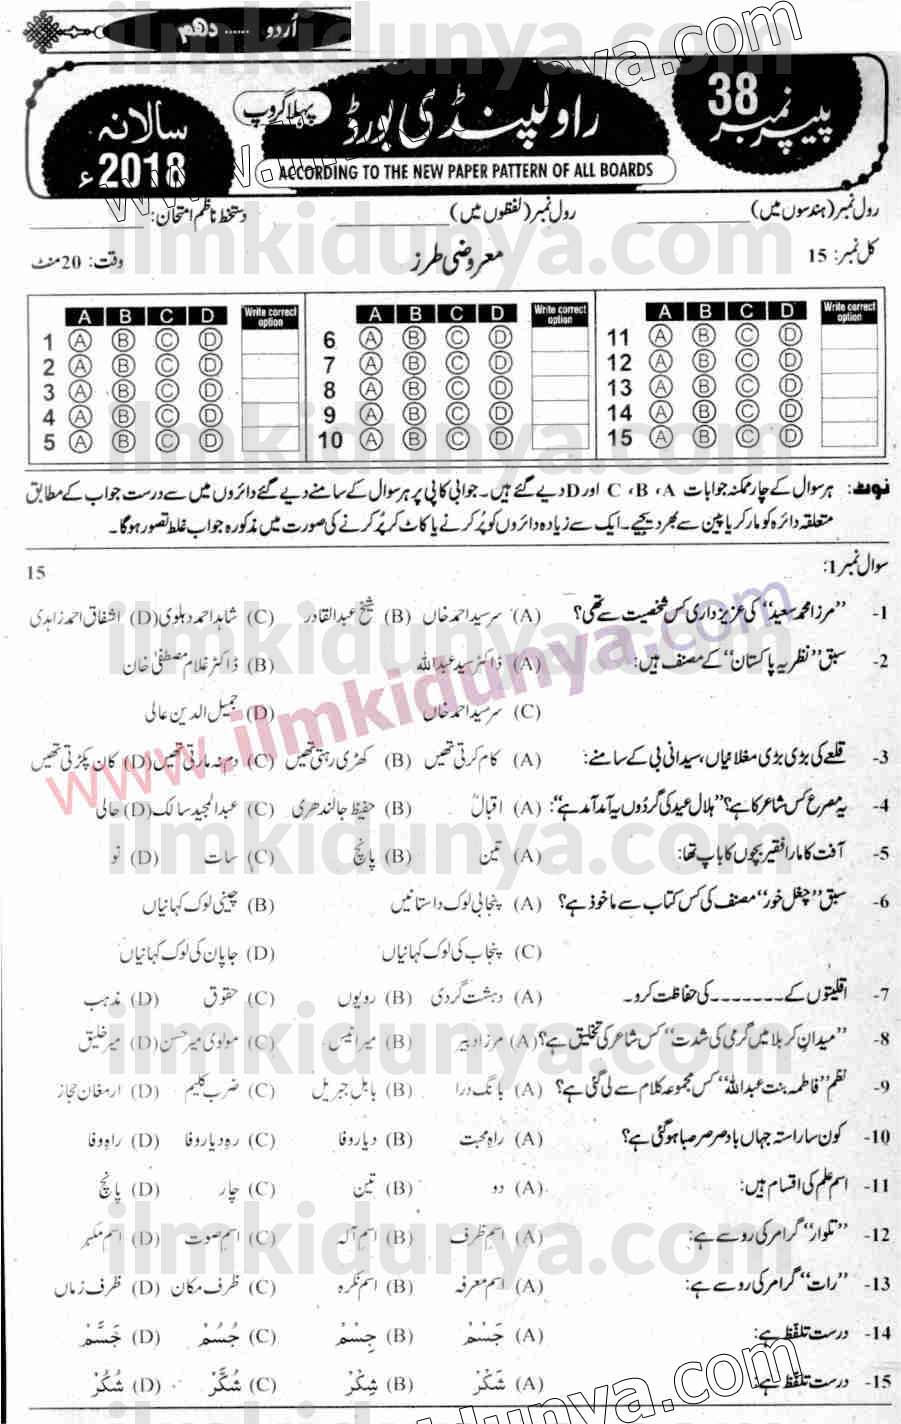 اُردو ...... دھم
پیپر نمبر 38
راولپنڈی بورڈ
پہلا گروپ
سالانہ 2018ء
ACCORDING TO THE NEW PAPER PATTERN OF ALL BOARDS
رول نمبر (ہندسوں میں) ________ رول نمبر (لفظوں میں) ________ دستخط ناظم امتحان: ________
کل نمبر: 15 معروضی طرز وقت: 20 منٹ
A B C D Write correct option A B C D Write correct option A B C D Write correct option
1 A B C D 6 A B C D 11 A B C D
2 A B C D 7 A B C D 12 A B C D
3 A B C D 8 A B C D 13 A B C D
4 A B C D 9 A B C D 14 A B C D
5 A B C D 10 A B C D 15 A B C D
نوٹ: ہر سوال کے چار ممکنہ جوابات A، B، C اور D دیے گئے ہیں۔ جوابی کاپی پر ہر سوال کے سامنے دیے گئے دائروں میں سے درست جواب کے مطابق
متعلقہ دائرہ کو مارکر یا پین سے بھر دیجیے۔ ایک سے زیادہ دائروں کو پُر کرنے یا کاٹ کر پُر کرنے کی صورت میں مذکورہ جواب غلط تصور ہوگا۔
سوال نمبر 1: 15
1- ”مرزا محمد سعید“ کی عزیز داری کس شخصیت سے تھی؟ (A) سرسید احمد خاں (B) شیخ عبدالقادر (C) شاہد احمد دہلوی (D) اشفاق احمد زاہدی
2- سبق ”نظریہ پاکستان“ کے مصنف ہیں: (A) ڈاکٹر سید عبداللہ (B) ڈاکٹر غلام مصطفیٰ خان
(C) سرسید احمد خاں (D) جمیل الدین عالی
3- قلعے کی بڑی بڑی مغلانیاں، سیدانی بی کے سامنے: (A) کام کرتی تھیں (B) کھڑی رہتی تھیں (C) دم نہ مارتی تھیں (D) کان پکڑتی تھیں
4- یہ مصرع کس شاعر کا ہے؟ ”ہلال عید کی گردُوں پہ آمد آمد ہے“: (A) اقبالؒ (B) حفیظ جالندھری (C) عبدالمجید سالک (D) حالی
5- آفت کا مارا فقیر بچوں کا باپ تھا: (A) تین (B) پانچ (C) سات (D) نو
6- سبق ”چغل خور“ مصنف کی کس کتاب سے ماخوذ ہے؟ (A) پنجابی لوک داستانیں (B) چینی لوک کہانیاں
(C) پنجاب کی لوک کہانیاں (D) جاپان کی لوک کہانیاں
7- اقلیتوں کے ------- کی حفاظت کرو۔ (A) دہشت گردی (B) رویوں (C) حقوق (D) مذہب
8- ”میدانِ کربلا میں گرمی کی شدت“ کس شاعر کی تخلیق ہے؟ (A) مرزا دبیر (B) میر انیس (C) مولوی میر حسن (D) میر خلیق
9- نظم ”فاطمہ بنت عبداللہ“ کس مجموعہ کلام سے لی گئی ہے؟ (A) بانگ درا (B) بابل جبریل (C) ضرب کلیم (D) ارمغان حجاز
10- کون سا راستہ جہاں بادِ صرصر صبا ہو گئی ہے؟ (A) راہِ محبت (B) دیارِ وفا (C) رہِ دیارِ وفا (D) راہِ وفا
11- اسم علم کی اقسام ہیں: (A) دو (B) تین (C) چار (D) پانچ
12- ”تلوار“ گرامر کی رو سے ہے: (A) اسمِ ظرف (B) اسمِ آلہ (C) اسمِ صوت (D) اسمِ مکبر
13- ”رات“ گرامر کی رو سے ہے: (A) اسمِ معرفہ (B) اسمِ نکرہ (C) ظرفِ مکان (D) ظرفِ زماں
14- درست تلفّظ ہے: (A) جَسْمْ (B) جِسْمْ (C) جُسُمْ (D) جَسَّمْ
15- درست تلفّظ ہے: (A) شَکَرْ (B) شِکْرْ (C) شُکَّرْ (D) شُکُرْ
www.ilmkidunya.com